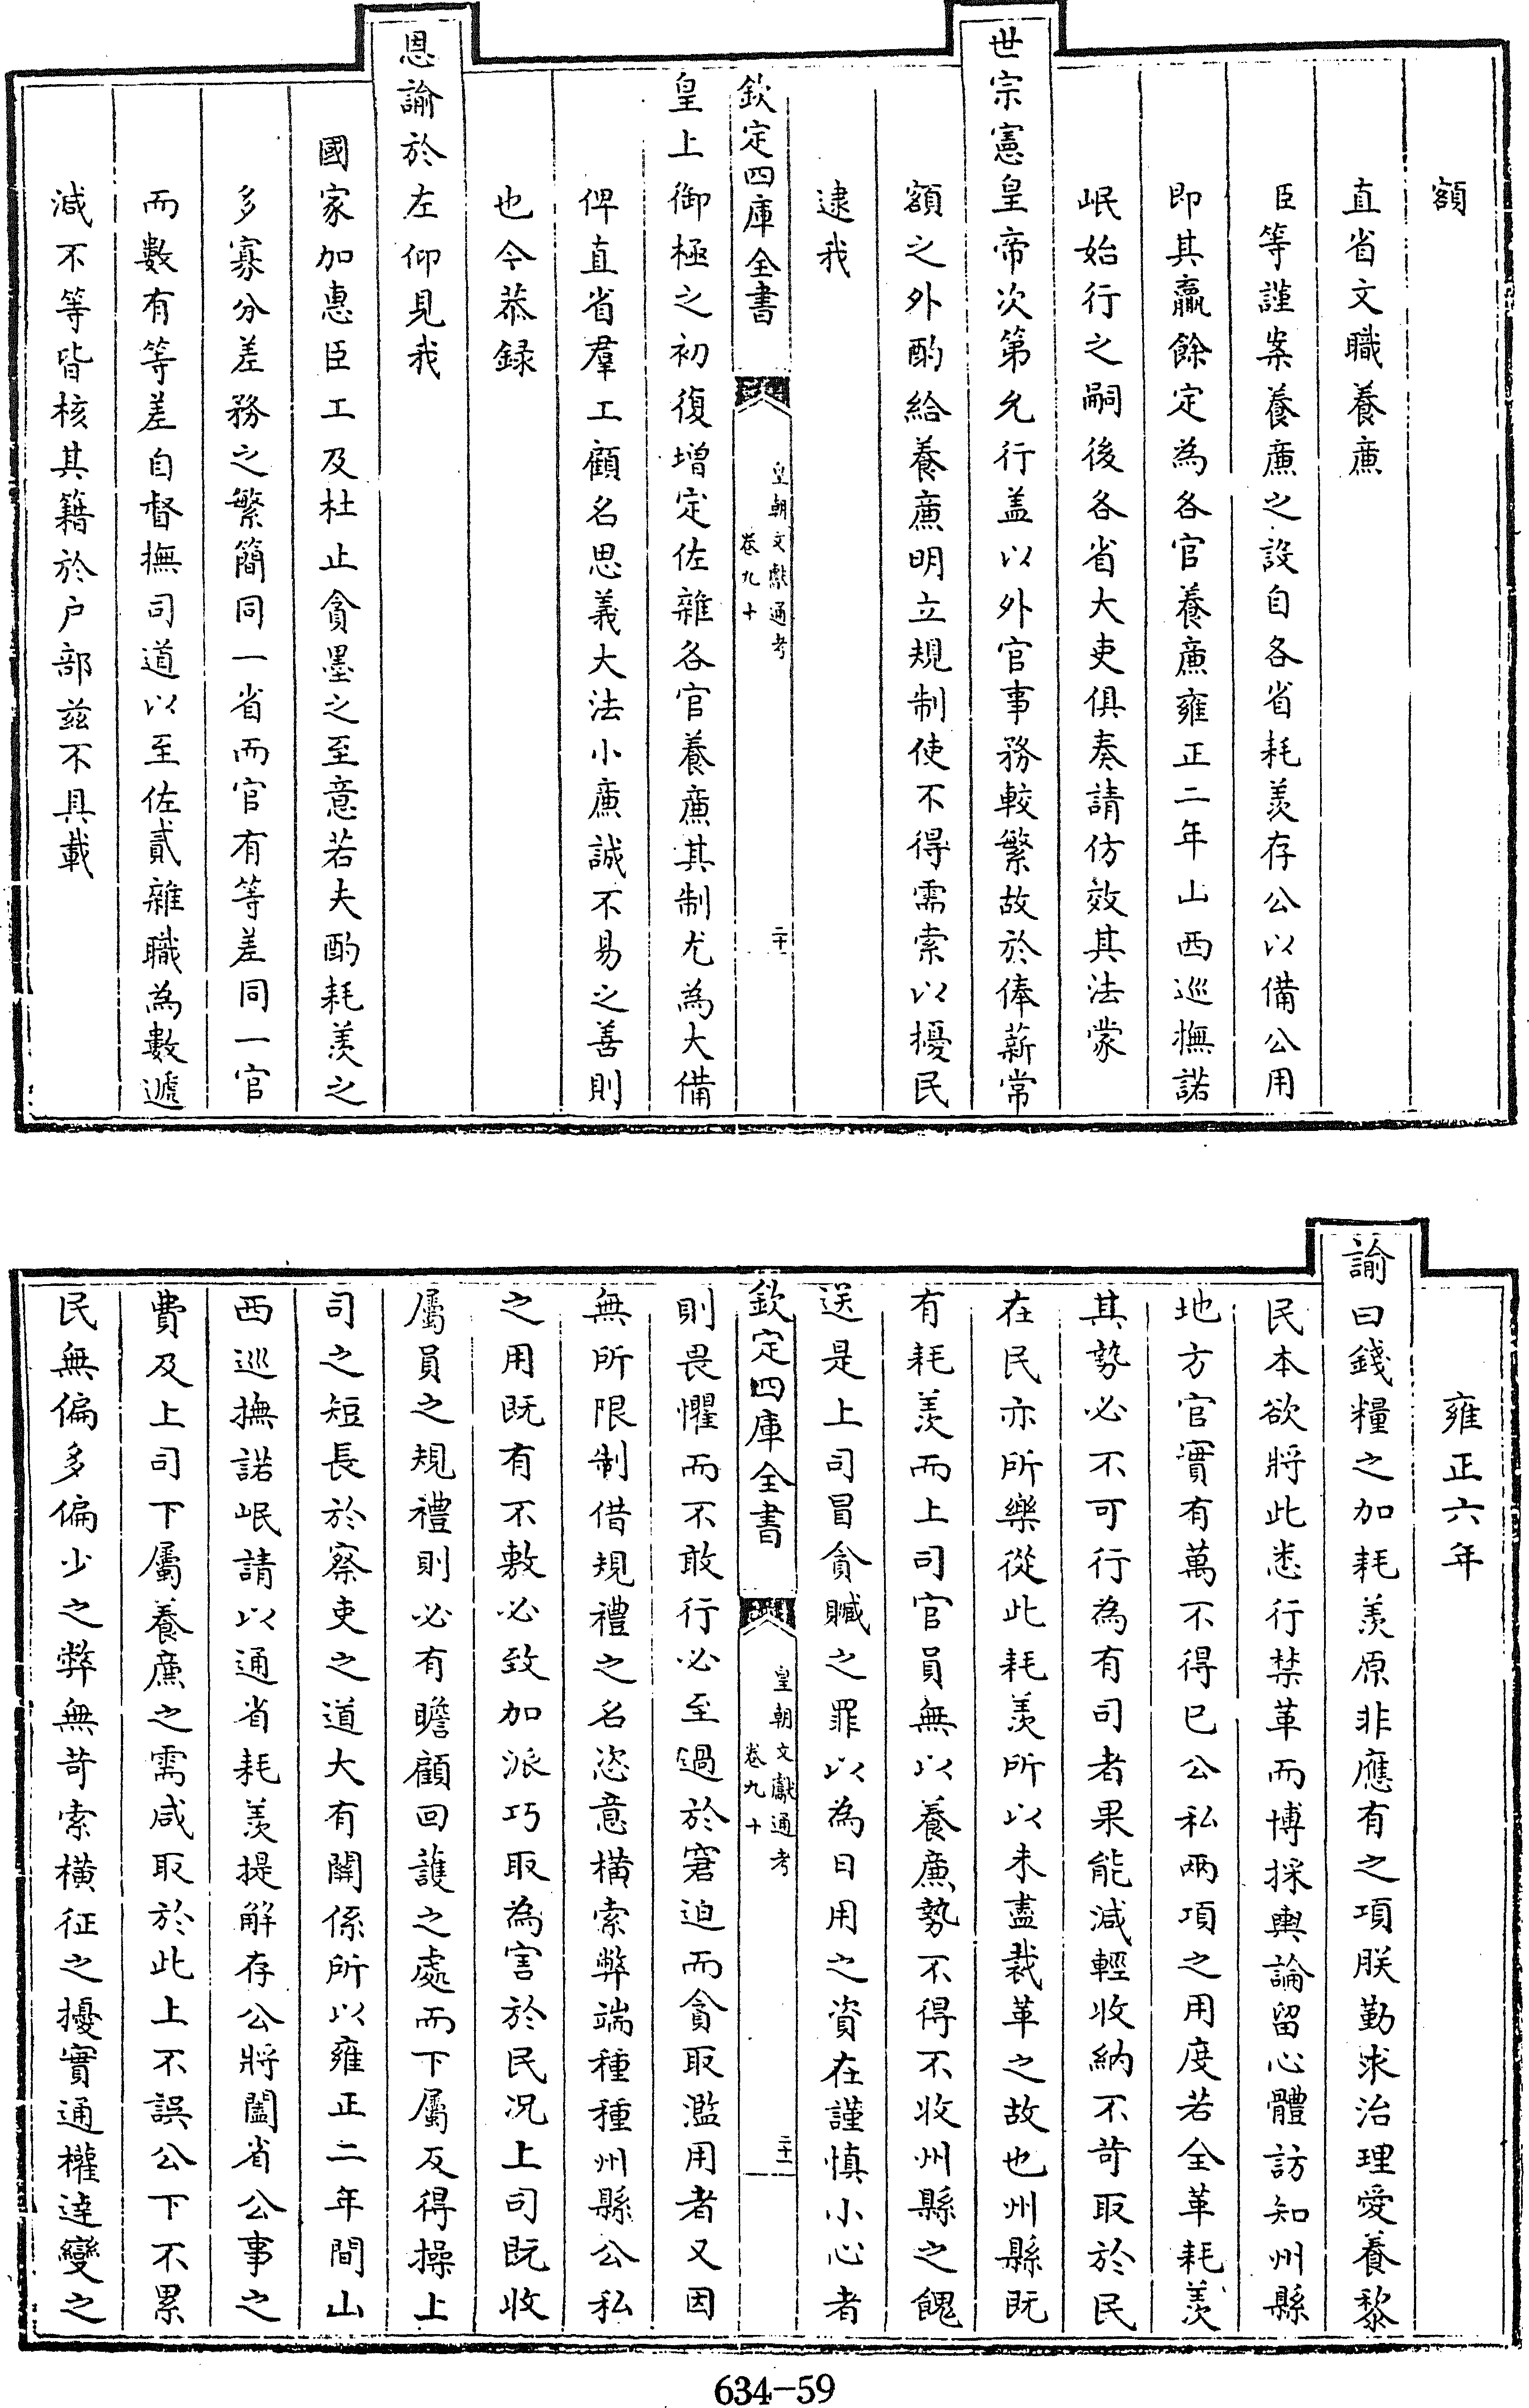 額
直省文職養廉
臣等謹案養廉之設自各省耗羨存公以備公用
即其羸餘定為各官養廉雍正二年山西巡撫諾
岷始行之嗣後各省大吏俱奏請仿效其法蒙
世宗憲皇帝次第允行盖以外官事務較繁故於俸薪常
額之外酌給養廉明立規制使不得需索以擾民
逮我
欽定四庫全書
皇朝文獻通考
卷九十
二十
皇上御極之初復增定佐雜各官養廉其制尤為大備
俾直省羣工顧名思義大法小廉誠不易之善則
也今恭録
恩諭於左仰見我
國家加惠臣工及杜止貪墨之至意若夫酌耗羨之
多寡分差務之繁簡同一省而官有等差同一官
而數有等差自督撫司道以至佐貳雜職為數遞
減不等皆核其籍於户部兹不具載
雍正六年
諭曰錢糧之加耗羨原非應有之項朕勤求治理愛養黎
民本欲將此悉行禁革而博採輿論留心體訪知州縣
地方官實有萬不得已公私兩項之用度若全革耗羨
其勢必不可行為有司者果能減輕收納不苛取於民
在民亦所樂從此耗羨所以未盡裁革之故也州縣既
有耗羨而上司官員無以養廉勢不得不收州縣之餽
送是上司冒貪贓之罪以為日用之資在謹慎小心者
欽定四庫全書
皇朝文獻通考
卷九十
二十一
則畏懼而不敢行必至過於窘迫而貪取濫用者又因
無所限制借規禮之名恣意横索弊端種種州縣公私
之用既有不敷必致加派巧取為害於民况上司既收
屬員之規禮則必有瞻顧回護之處而下屬反得操上
司之短長於察吏之道大有關係所以雍正二年間山
西巡撫諾岷請以通省耗羨提解存公將闔省公事之
費及上司下屬養廉之需咸取於此上不誤公下不累
民無偏多偏少之弊無苛索横征之擾實通權達變之
634-59